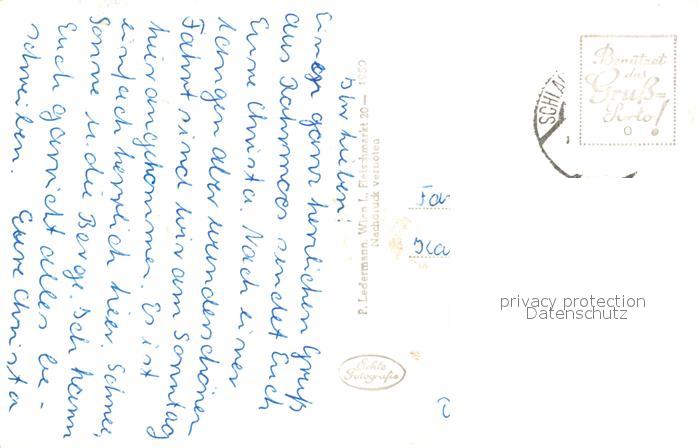 Ihr Lieben!
Einen ganz herzlichen Gruß
aus Rahmoos sendet Euch
Eure Christa. Nach einer
langen aber wunderschönen
Fahrt sind wir am Sonntag
hier angekommen. Es ist
einfach herrlich hier Schnee,
Sonne u. die Berge. Ich kann
Euch garnicht alles be-
schreiben. Eure Christa
P. Ledermann, Wien I., Fleischmarkt 20 — 1950
Nachdruck verboten
Echte
Fotografie
SCHLA
Benützet
das
Gruß-
Porto!
Fa
privacy protection
Datenschutz